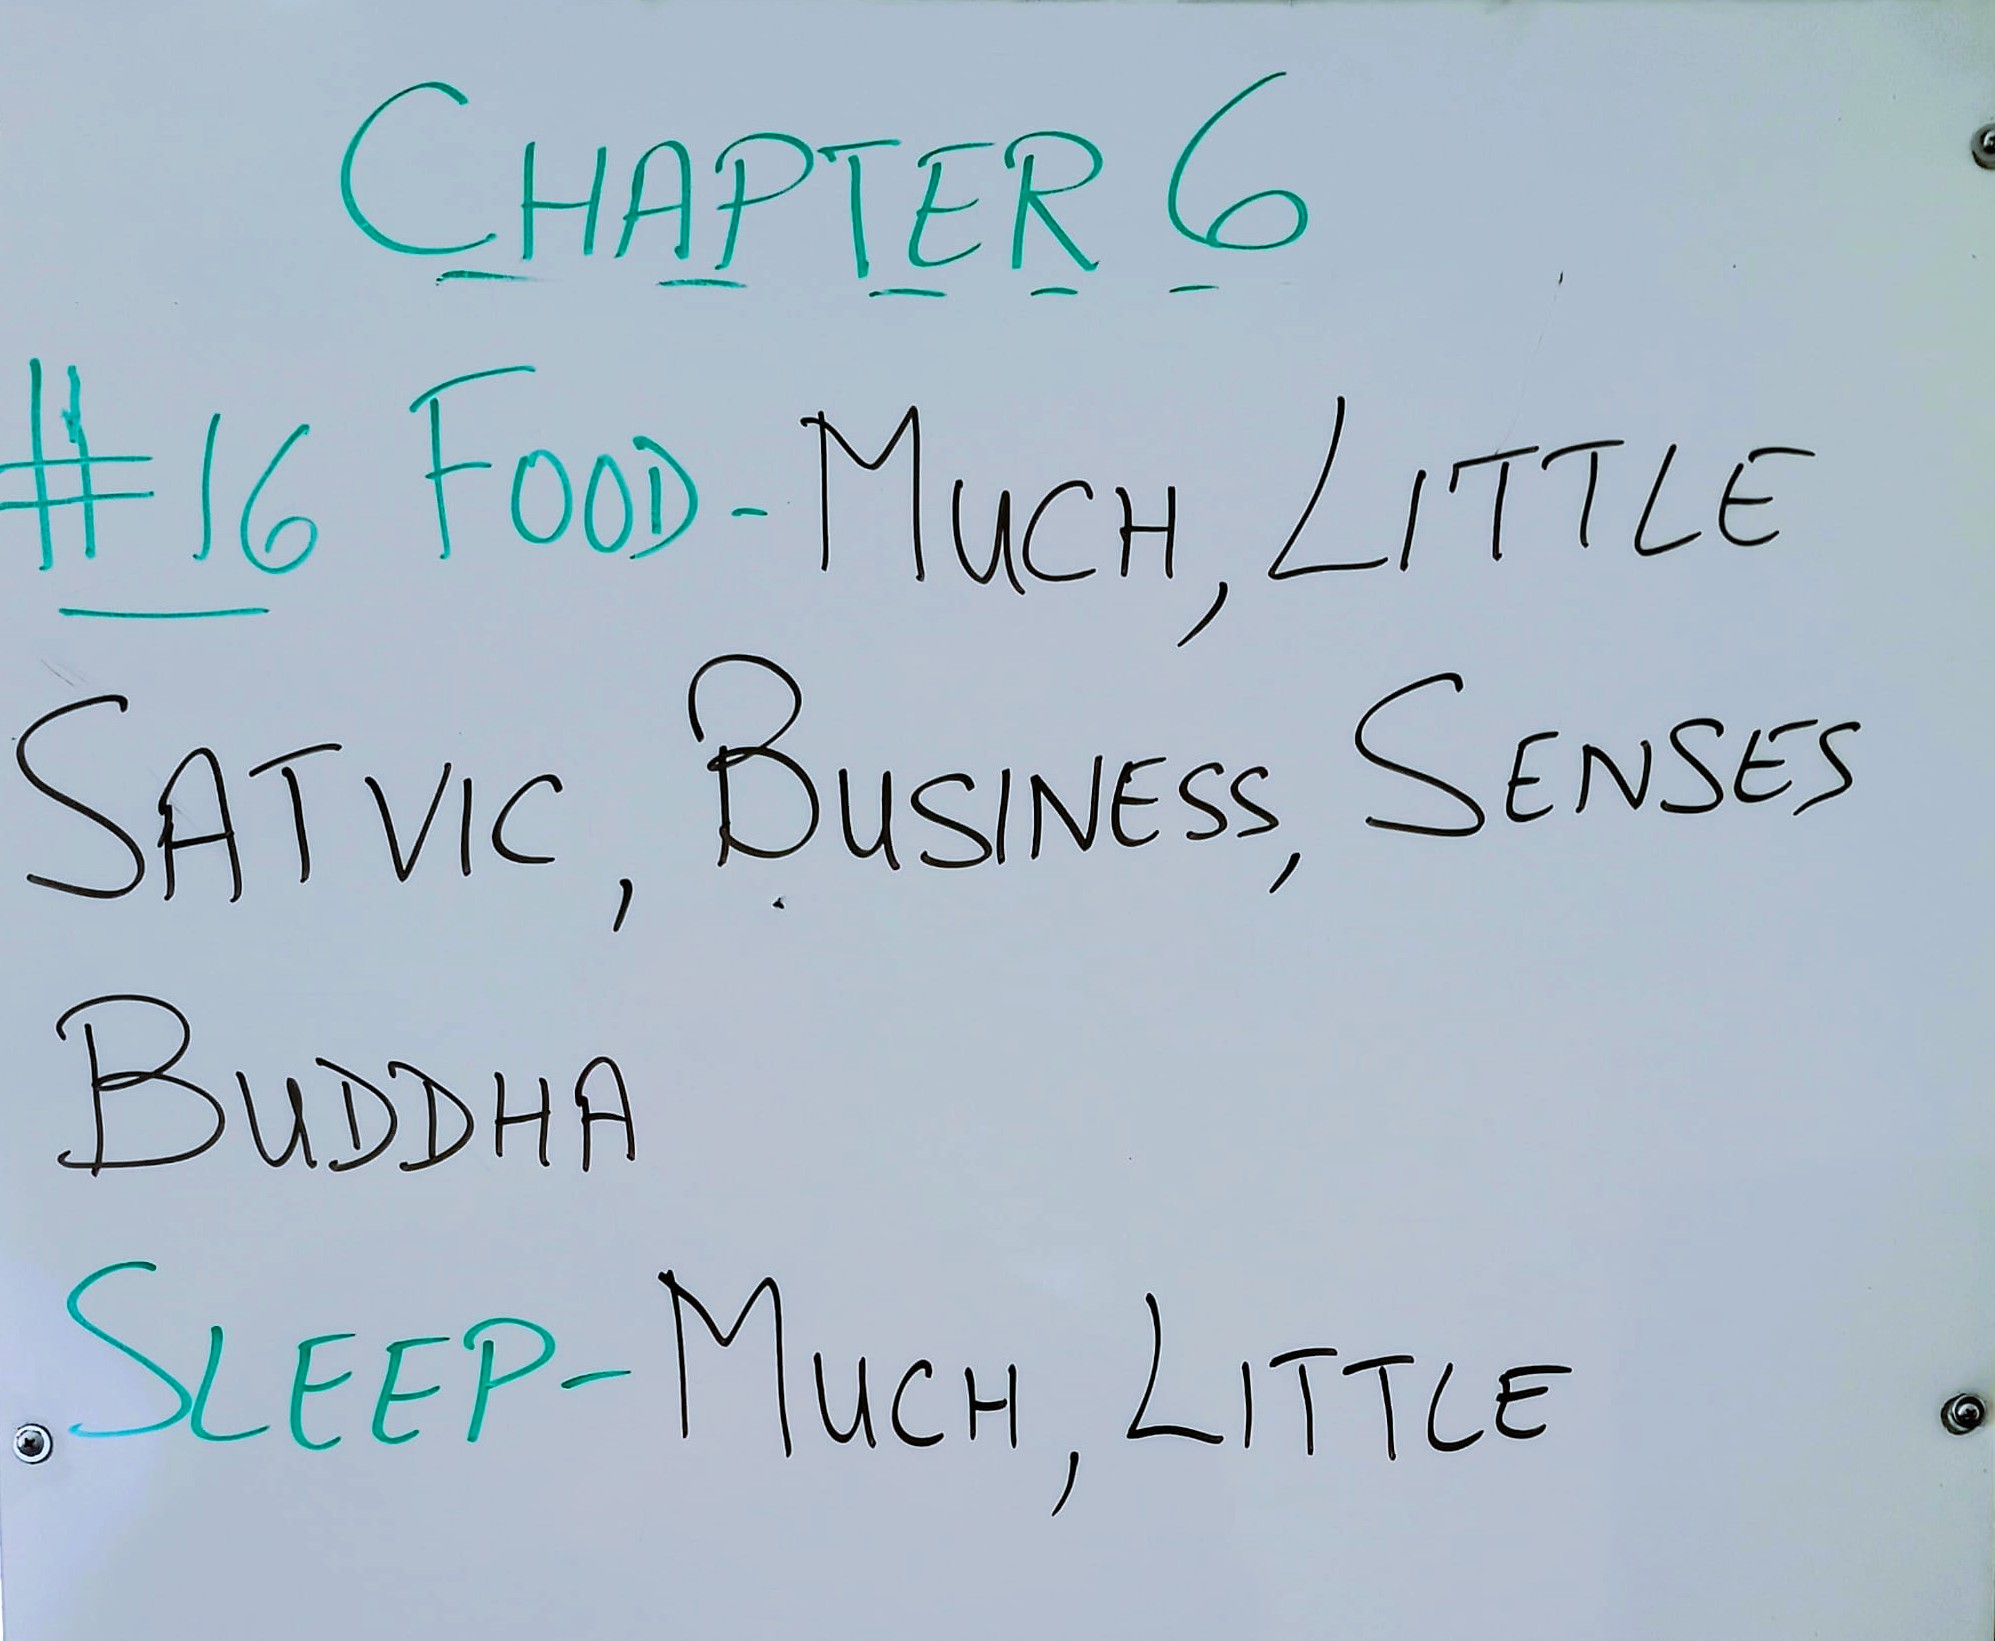 CHAPTER 6
#16 FOOD - MUCH, LITTLE
SATVIC, BUSINESS, SENSES
BUDDHA
SLEEP - MUCH, LITTLE